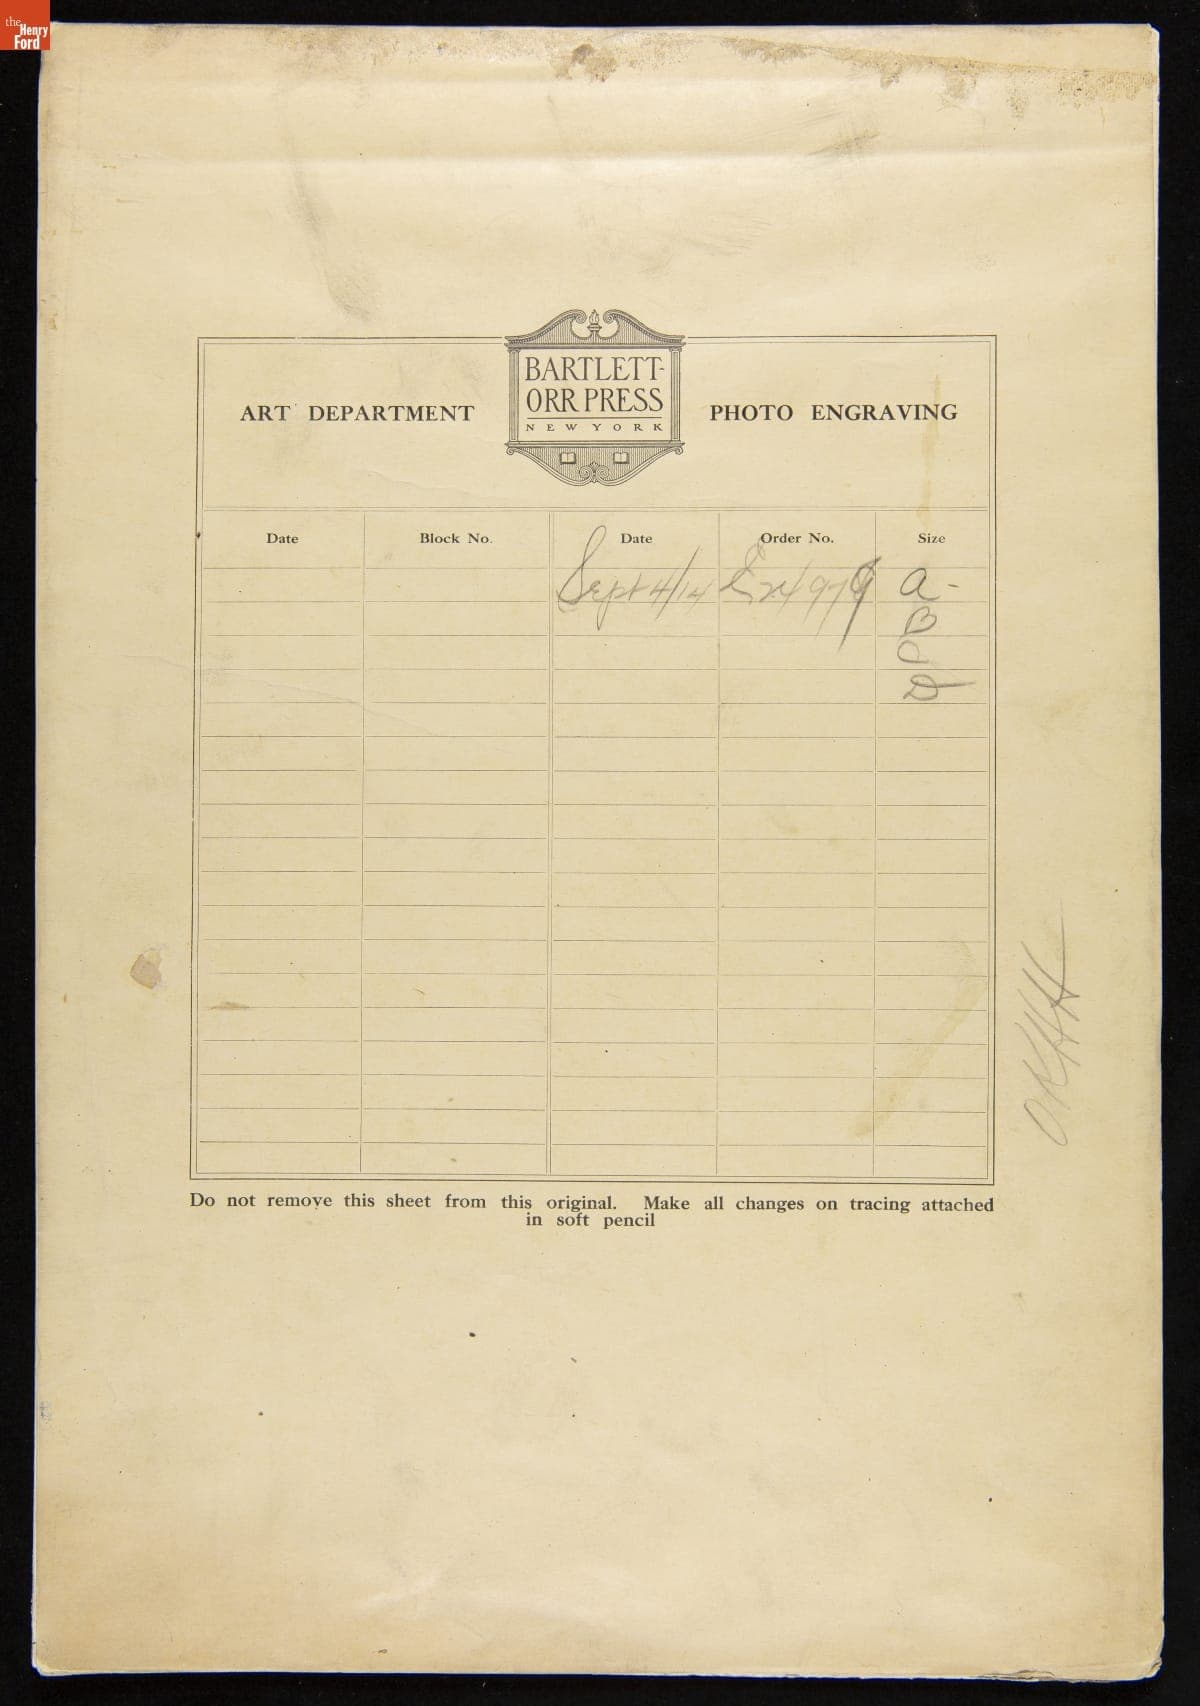 the
Henry
Ford
BARTLETT-
ORR PRESS
NEW YORK
ART DEPARTMENT
PHOTO ENGRAVING
Date Block No. Date Order No. Size
Sept 4/14 a-
B
D
OKHH
Do not remove this sheet from this original. Make all changes on tracing attached
in soft pencil